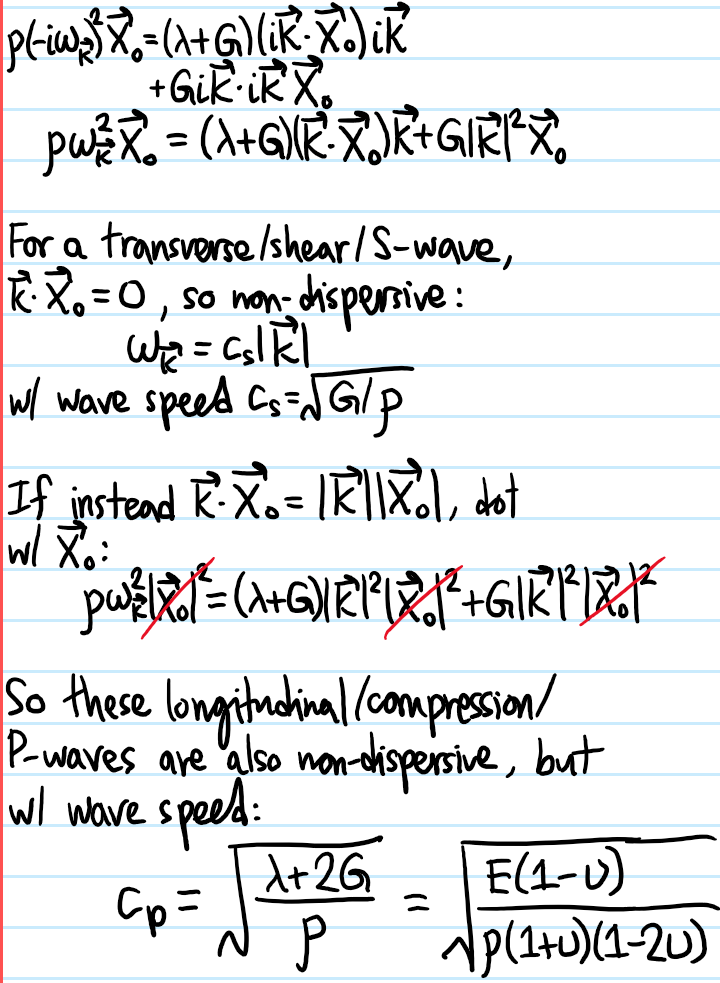 ρ(-iω_k⃗)²X⃗₀=(λ+G)(ik⃗·X⃗₀)ik⃗
+Gik⃗·ik⃗X⃗₀
ρω²_k⃗X⃗₀=(λ+G)(k⃗·X⃗₀)k⃗+G|k⃗|²X⃗₀
For a transverse/shear/S-wave,
k⃗·X⃗₀=0, so non-dispersive:
ω_k⃗=cₛ|k⃗|
w/ wave speed cₛ=√G/ρ
If instead k⃗·X⃗₀=|k⃗||X⃗₀|, dot
w/ X⃗₀:
ρω²_k⃗|X⃗₀|²=(λ+G)|k⃗|²|X⃗₀|²+G|k⃗|²|X⃗₀|²
So these longitudinal/compression/
P-waves are also non-dispersive, but
w/ wave speed:
c_p=√((λ+2G)/ρ)=√(E(1-υ)/(ρ(1+υ)(1-2υ)))